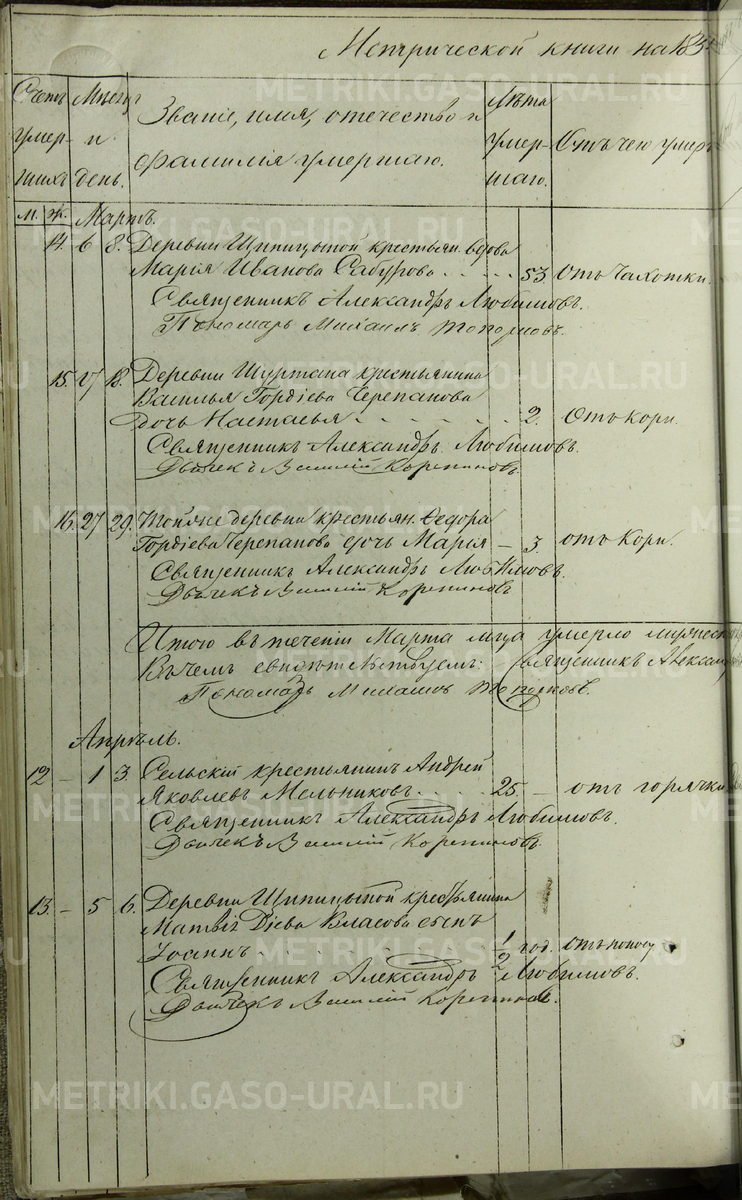 Метрической книги на 183
Счетъ умер-шихъ
Мѣсяцъ и день.
Званіе, имя, отечество и фамилія умершаго.
Лѣта умер-шаго.
Отъ чего умеръ
М. Ж. Мартъ.
14. 6 8. Деревни Щипицыной крестьян. вдова
Марія Иванова Сабурова . . . . . 53. отъ чахотки.
Священникъ Александръ Любимовъ.
Пономарь Михаилъ Топорковъ.
15. 27 Деревни Шуртана крестьянина
Василья Гордіева Черепанова
дочь Настасья . . . . . . . 2. отъ кори.
Священникъ Александръ Любимовъ.
Дьячекъ Василій Корепиновъ.
16. 27 29. Той же деревни крестьян. Федора
Гордіева Черепанова дочь Марія – 3. отъ кори.
Священникъ Александръ Любимовъ.
Дьячекъ Василій Корепиновъ
Итого въ теченіи Марта мца умерло
Въ чемъ свидѣтельствуемъ: Священникъ Александръ
Пономарь Топорковъ.
Апрѣль.
12 – 1 3. Сельскій крестьянинъ Андрей
Яковлевъ Мельниковъ . . . . . 25. – отъ горячки
Священникъ Александръ Любимовъ.
Дьячекъ Василій Корепиновъ.
13. – 5 6. Деревни Щипицыной крестьянина
Матвѣя Діева Власова сынъ
Іоаннъ . . . . . . . . . . ½ год. отъ поносу
Священникъ Александръ Любимовъ.
Дьячекъ Василій Корепиновъ.
METRIKI.GASO-URAL.RU